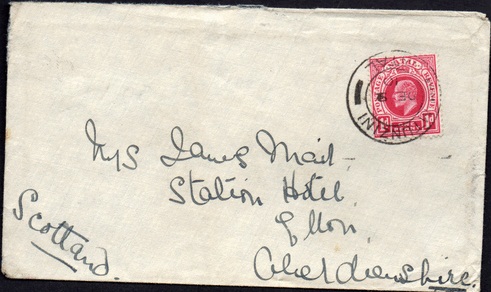 POSTAGE NATAL REVENUE
1d
Mrs James Mait
Station Hotel
Ellon
Aberdeenshire.
Scotland.